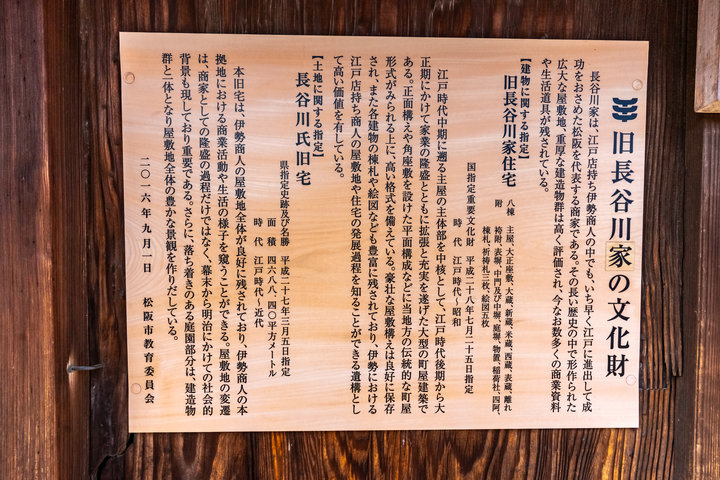 旧長谷川家の文化財
長谷川家は、江戸店持ち伊勢商人の中でも、いち早く江戸に進出して成
功をおさめた松阪を代表する商家である。その長い歴史の中で形作られた
広大な屋敷地、重厚な建造物群は高く評価され、今なお数多くの商業資料
や生活道具が残されている。
【建物に関する指定】
旧長谷川家住宅
八棟 主屋、大正座敷、大蔵、新蔵、米蔵、西蔵、表蔵、離れ
附 袴附、表塀、中門及び中塀、庭塀、物置、稲荷社、四阿、
棟札、祈祷札三枚、絵図五枚
国指定重要文化財 平成二十八年七月二十五日指定
時代 江戸時代～昭和
江戸時代中期に遡る主屋の主体部を中核として、江戸時代後期から大
正期にかけて家業の隆盛とともに拡張と充実を遂げた大型の町屋建築で
ある。正面構えや角座敷を設けた平面構成などに当地方の伝統的な町屋
形式がみられる上に、高い格式を備えている。豪壮な屋敷構えは良好に保存
され、また各建物の棟札や絵図なども豊富に残されており、伊勢における
江戸店持ち商人の屋敷地や住宅の発展過程を知ることができる遺構とし
て高い価値を有している。
【土地に関する指定】
長谷川氏旧宅
県指定史跡及び名勝 平成二十七年三月五日指定
面積 四六八八・四〇平方メートル
時代 江戸時代～近代
本旧宅は、伊勢商人の屋敷地全体が良好に残されており、伊勢商人の本
拠地における商業活動や生活の様子を窺うことができる。屋敷地の変遷
は、商家としての隆盛の過程だけではなく、幕末から明治にかけての社会的
背景も現しており重要である。さらに、落ち着きのある庭園部分は、建造物
群と一体となり屋敷地全体の豊かな景観を作りだしている。
二〇一六年九月一日 松阪市教育委員会